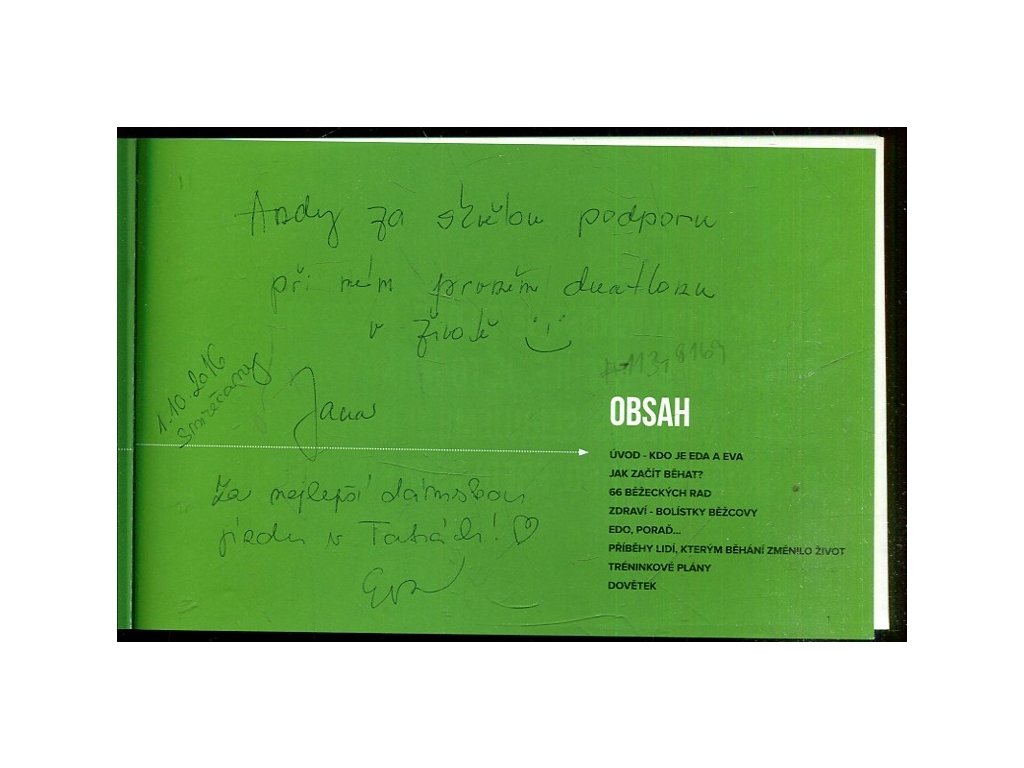 Andy za skvělou podporu
při mém prvním duatlonu
v životě
1.10.2016
Smrečany
Jana
Za nejlepší dámskou
jízdu v Tatrách!
Eva
OBSAH
ÚVOD - KDO JE EDA A EVA
JAK ZAČÍT BĚHAT?
66 BĚŽECKÝCH RAD
ZDRAVÍ - BOLÍSTKY BĚŽCOVY
EDO, PORAĎ...
PŘÍBĚHY LIDÍ, KTERÝM BĚHÁNÍ ZMĚNILO ŽIVOT
TRÉNINKOVÉ PLÁNY
DOVĚTEK